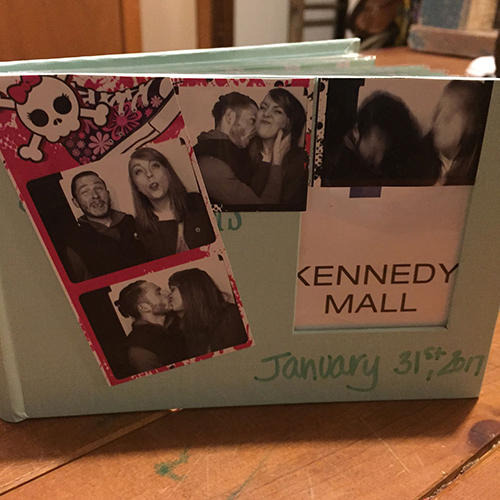 KENNEDY
MALL
January 31st, 2017